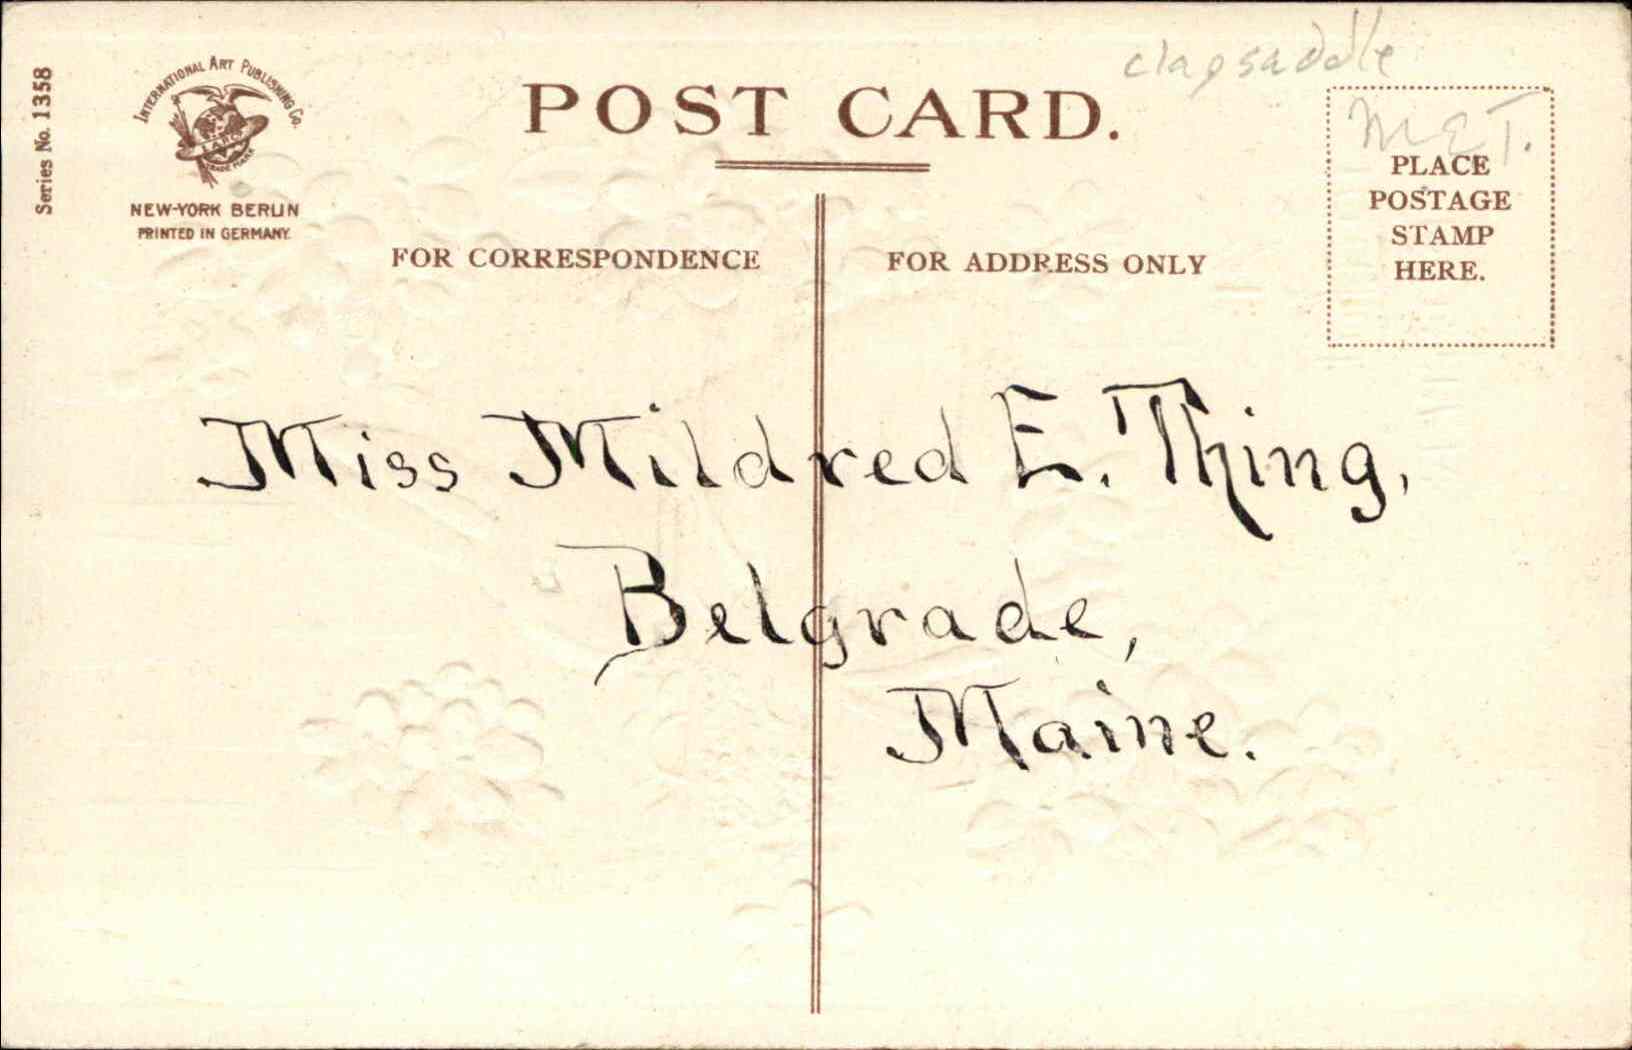 clapsaddle
Series No. 1358
INTERNATIONAL ART PUBLISHING CO.
NEW-YORK BERLIN
PRINTED IN GERMANY.
POST CARD.
M E T.
PLACE
POSTAGE
STAMP
HERE.
FOR CORRESPONDENCE
FOR ADDRESS ONLY
Miss Mildred E. Thing,
Belgrade,
Maine.